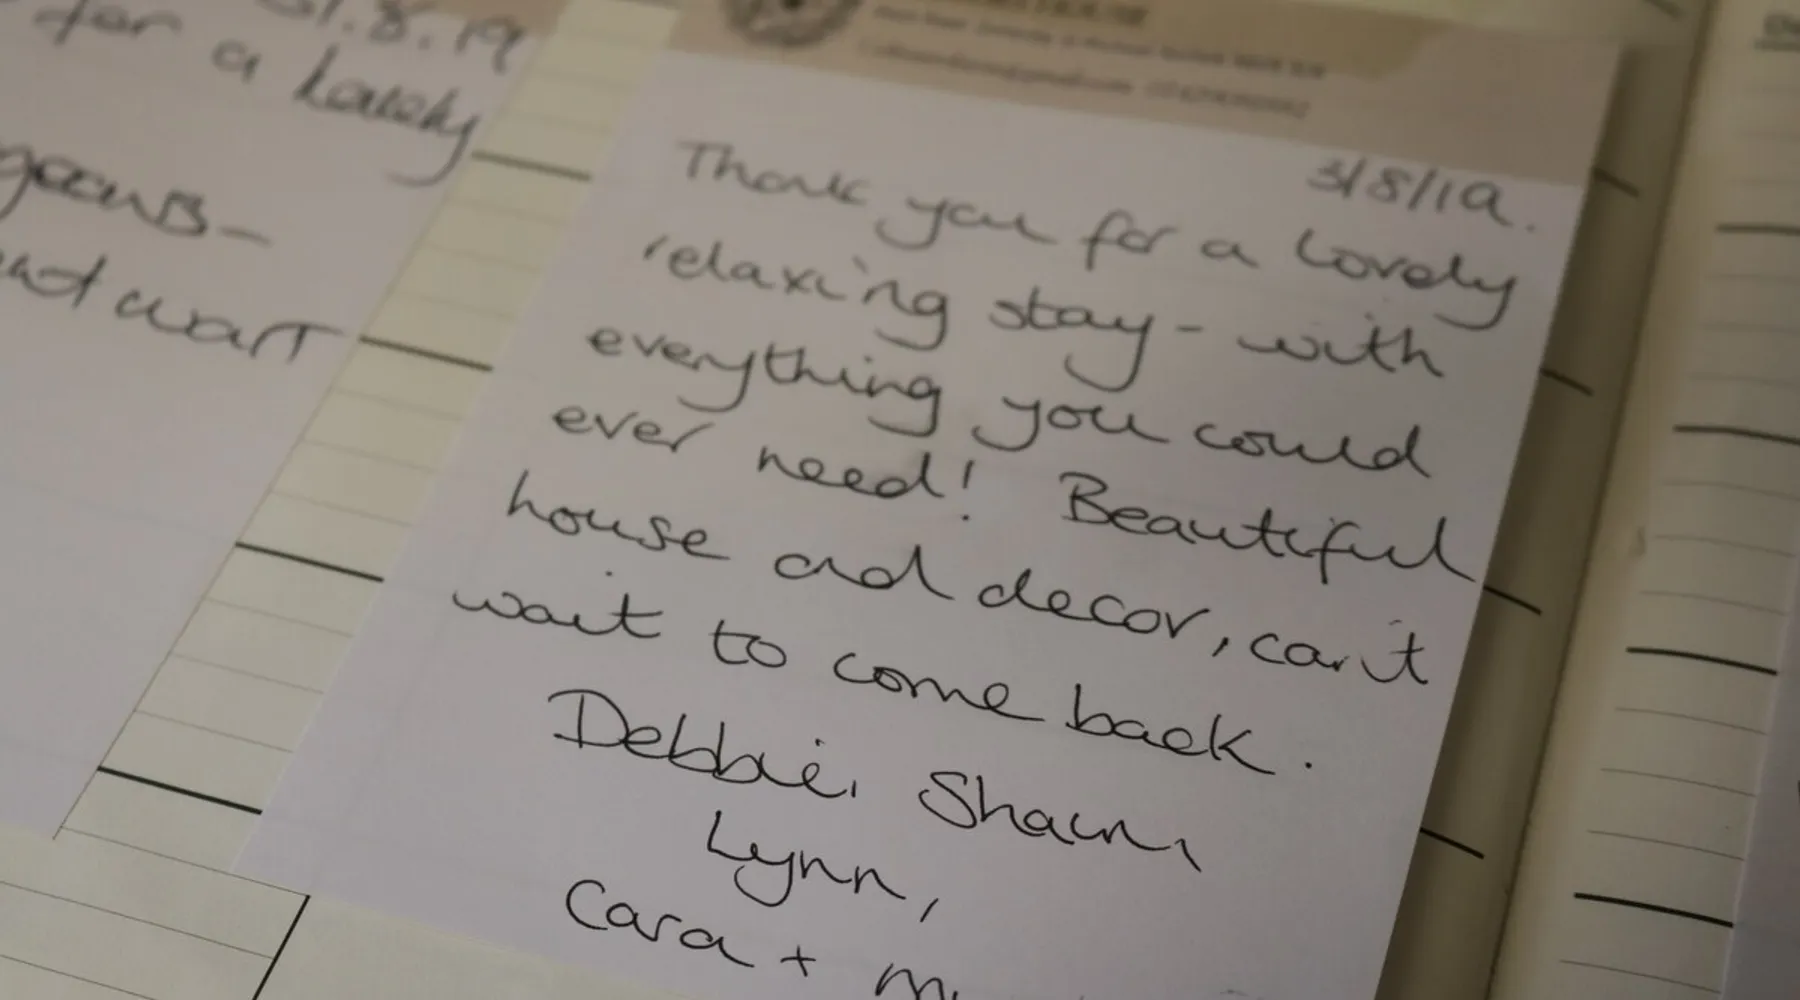 31.8.19
for a lovely
wait
HOUSE
3/8/19.
Thank you for a lovely
relaxing stay - with
everything you could
ever need! Beautiful
house and decor, can't
wait to come back.
Debbie, Shaun,
Lynn,
Cara +